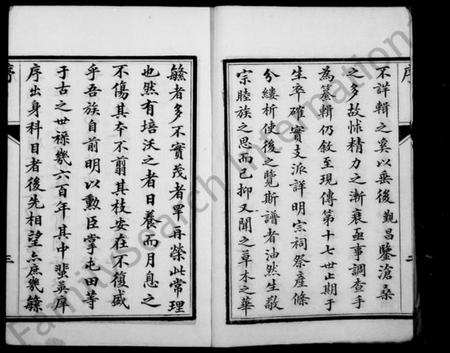 序
不詳輯之奚以垂後觀昌鑒滄桑
之多故怵精力之漸衰亟事調查手
為纂輯仍敘至現傳第十七世止期于
生卒確實支派詳明宗祠祭產條
分縷析使後之覽斯譜者油然生敬
宗睦族之思而已抑又聞之草木之華
二
鯀者多不實茂者單再榮此常理
也然有培沃之者日養而月息之
不傷其本不翦其枝安在不復盛
乎吾族自前明以勳臣掌屯田等
于古之世祿幾六百年其中蜚英庠
序出身科目者後先相望亦庶幾鯀
序
三
FamilySearch International